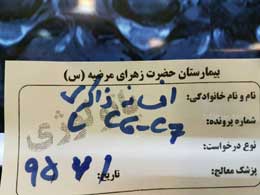 بیمارستان حضرت زهرای مرضیه (س)
نام و نام خانوادگی: افسانه ذاکری
شماره پرونده: C6-C7
نوع درخواست:
پزشک معالج:
تاریخ: